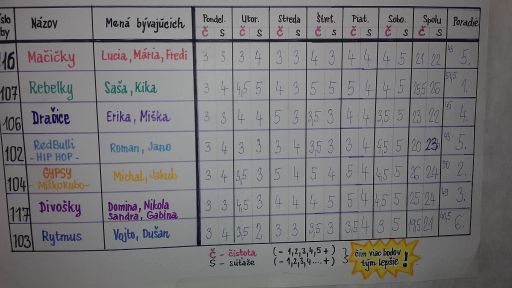 číslo izby Názov Mená bývajúcich Pondel. Utor. Streda Štvrt. Piat. Sobo. Spolu Poradie
Č S Č S Č S Č S Č S Č S Č S
116 Mačičky Lucia, Mária, Fredi 3 3 3 4 3 3 4 3 4 4 4 5 21 22 5.
107 Rebelky Saša, Kika 3 4 4,5 5 4 5 4 4 5 4 4 4 1.
106 Dračice Erika, Miška 3 3 4 4 5 3 3,5 3 4 4 3,5 5 23 22 4.
102 RedBulli Roman, Jano 3 4 3 3 3 4 3,5 3 4 4 4,5 5 20 23 5.
- HIP HOP -
104 GYPSY Michal, Jakub 3 4 3,5 3 5 4 5 4 5 4 4,5 5 26 24 2.
- Miškokubo -
117 Divošky Domina, Nikola 3 3 4,5 3 3 4 4 4 5 5 4,5 5 25 24 3.
Sandra, Gabina
103 Rytmus Vojto, Dušan 3 4 3,5 2 3 3 3,5 3 3,5 4 3 5 19,5 21 6.
Č - čistota (- 1,2,3,4,5 +)
S - súťaže (- 1,2,3,4....+)
čím viac bodov
tým lepšie !